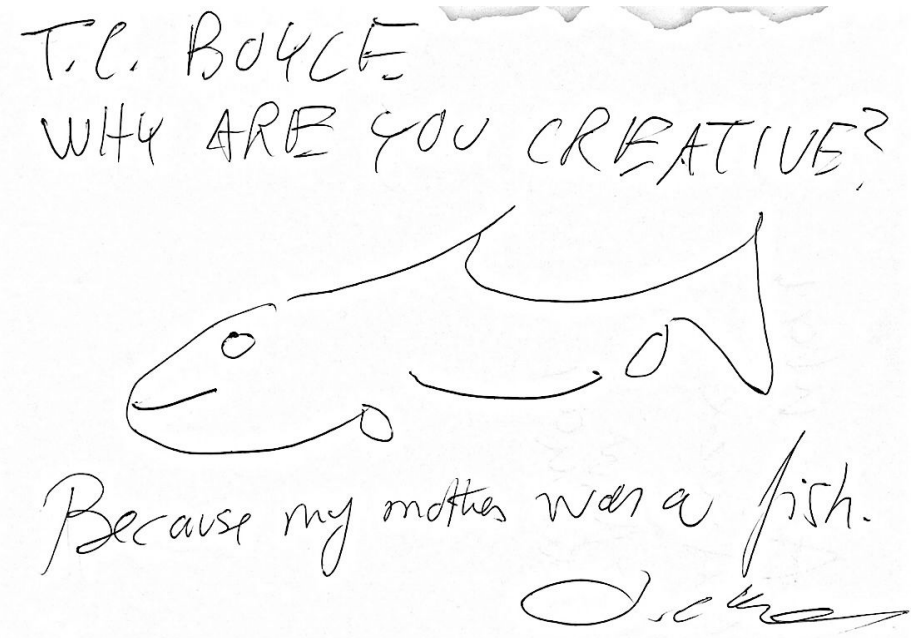 T.C. BOYCE
WHY ARE YOU CREATIVE?
Because my mother was a fish.